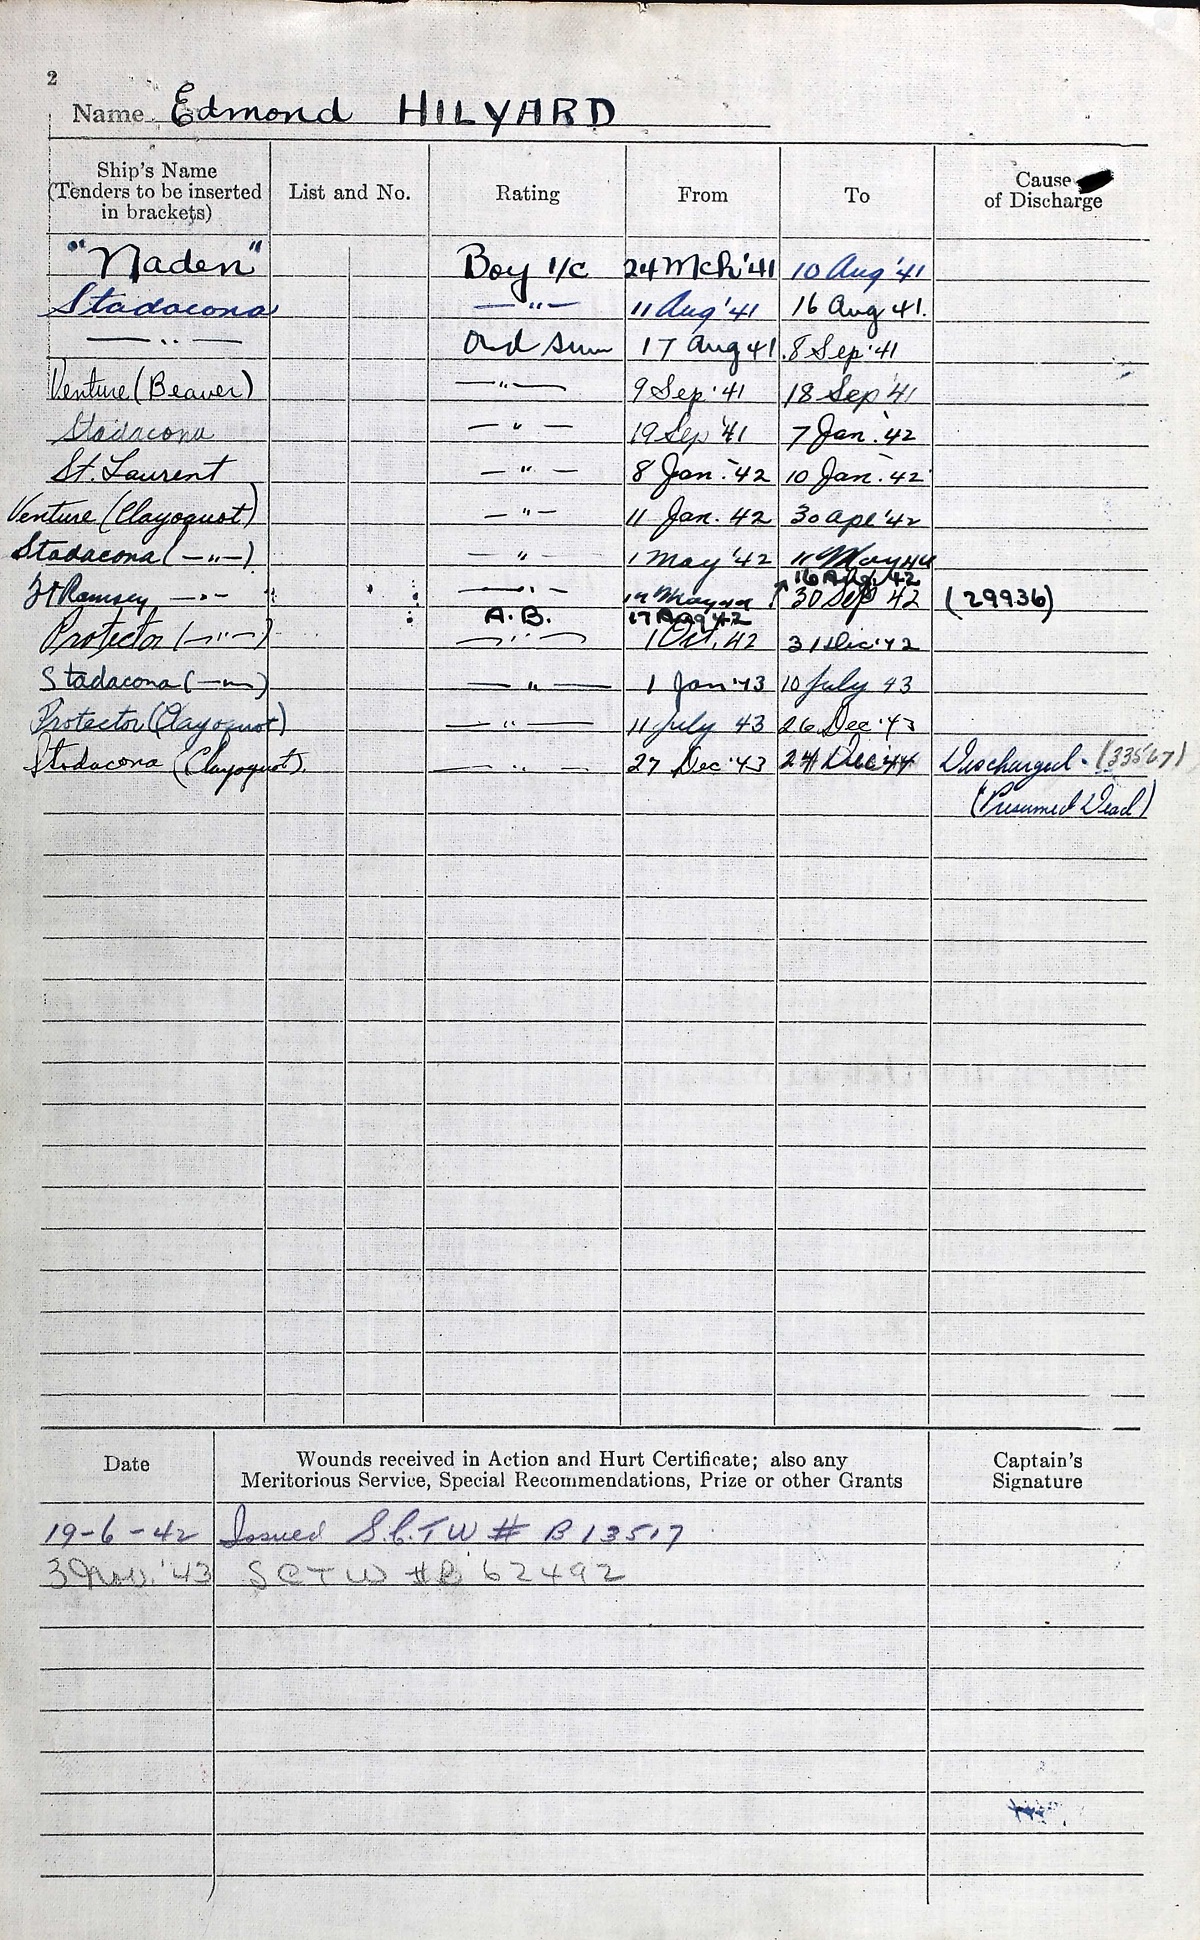 2
Name Edmond HILYARD
Ship's Name (Tenders to be inserted in brackets) List and No. Rating From To Cause of Discharge
"Naden" Boy 1/c 24 Mch '41 10 Aug '41
Stadacona —"— 11 Aug '41 16 Aug 41.
—"— Ord Smn 17 Aug 41. 8 Sep '41
Venture (Beaver) —"— 9 Sep '41 18 Sep '41
Stadacona —"— 19 Sep '41 7 Jan. '42
St. Laurent —"— 8 Jan. '42 10 Jan. '42
Venture (Clayoquot) —"— 11 Jan. 42 30 Apl '42
Stadacona (—"—) —"— 1 May '42
16 Aug. 42
Ramsey —"— —"— 30 Sep 42 (29936)
A.B. 17 Aug 42
Protector (—"—) —"— 1 Oct. 42 31 Dec '42
Stadacona (—"—) —"— 1 Jan '43 10 July 43
Protector (Clayoquot) —"— 11 July 43 26 Dec '43
Stadacona (Clayoquot). —"— 27 Dec '43 24 Dec '44 Discharged - (33567)
(Presumed Dead)
Date Wounds received in Action and Hurt Certificate; also any Meritorious Service, Special Recommendations, Prize or other Grants Captain's Signature
19-6-42 Issued S.C.T W # B 13517
3 Nov. '43 S C T W # B 62492